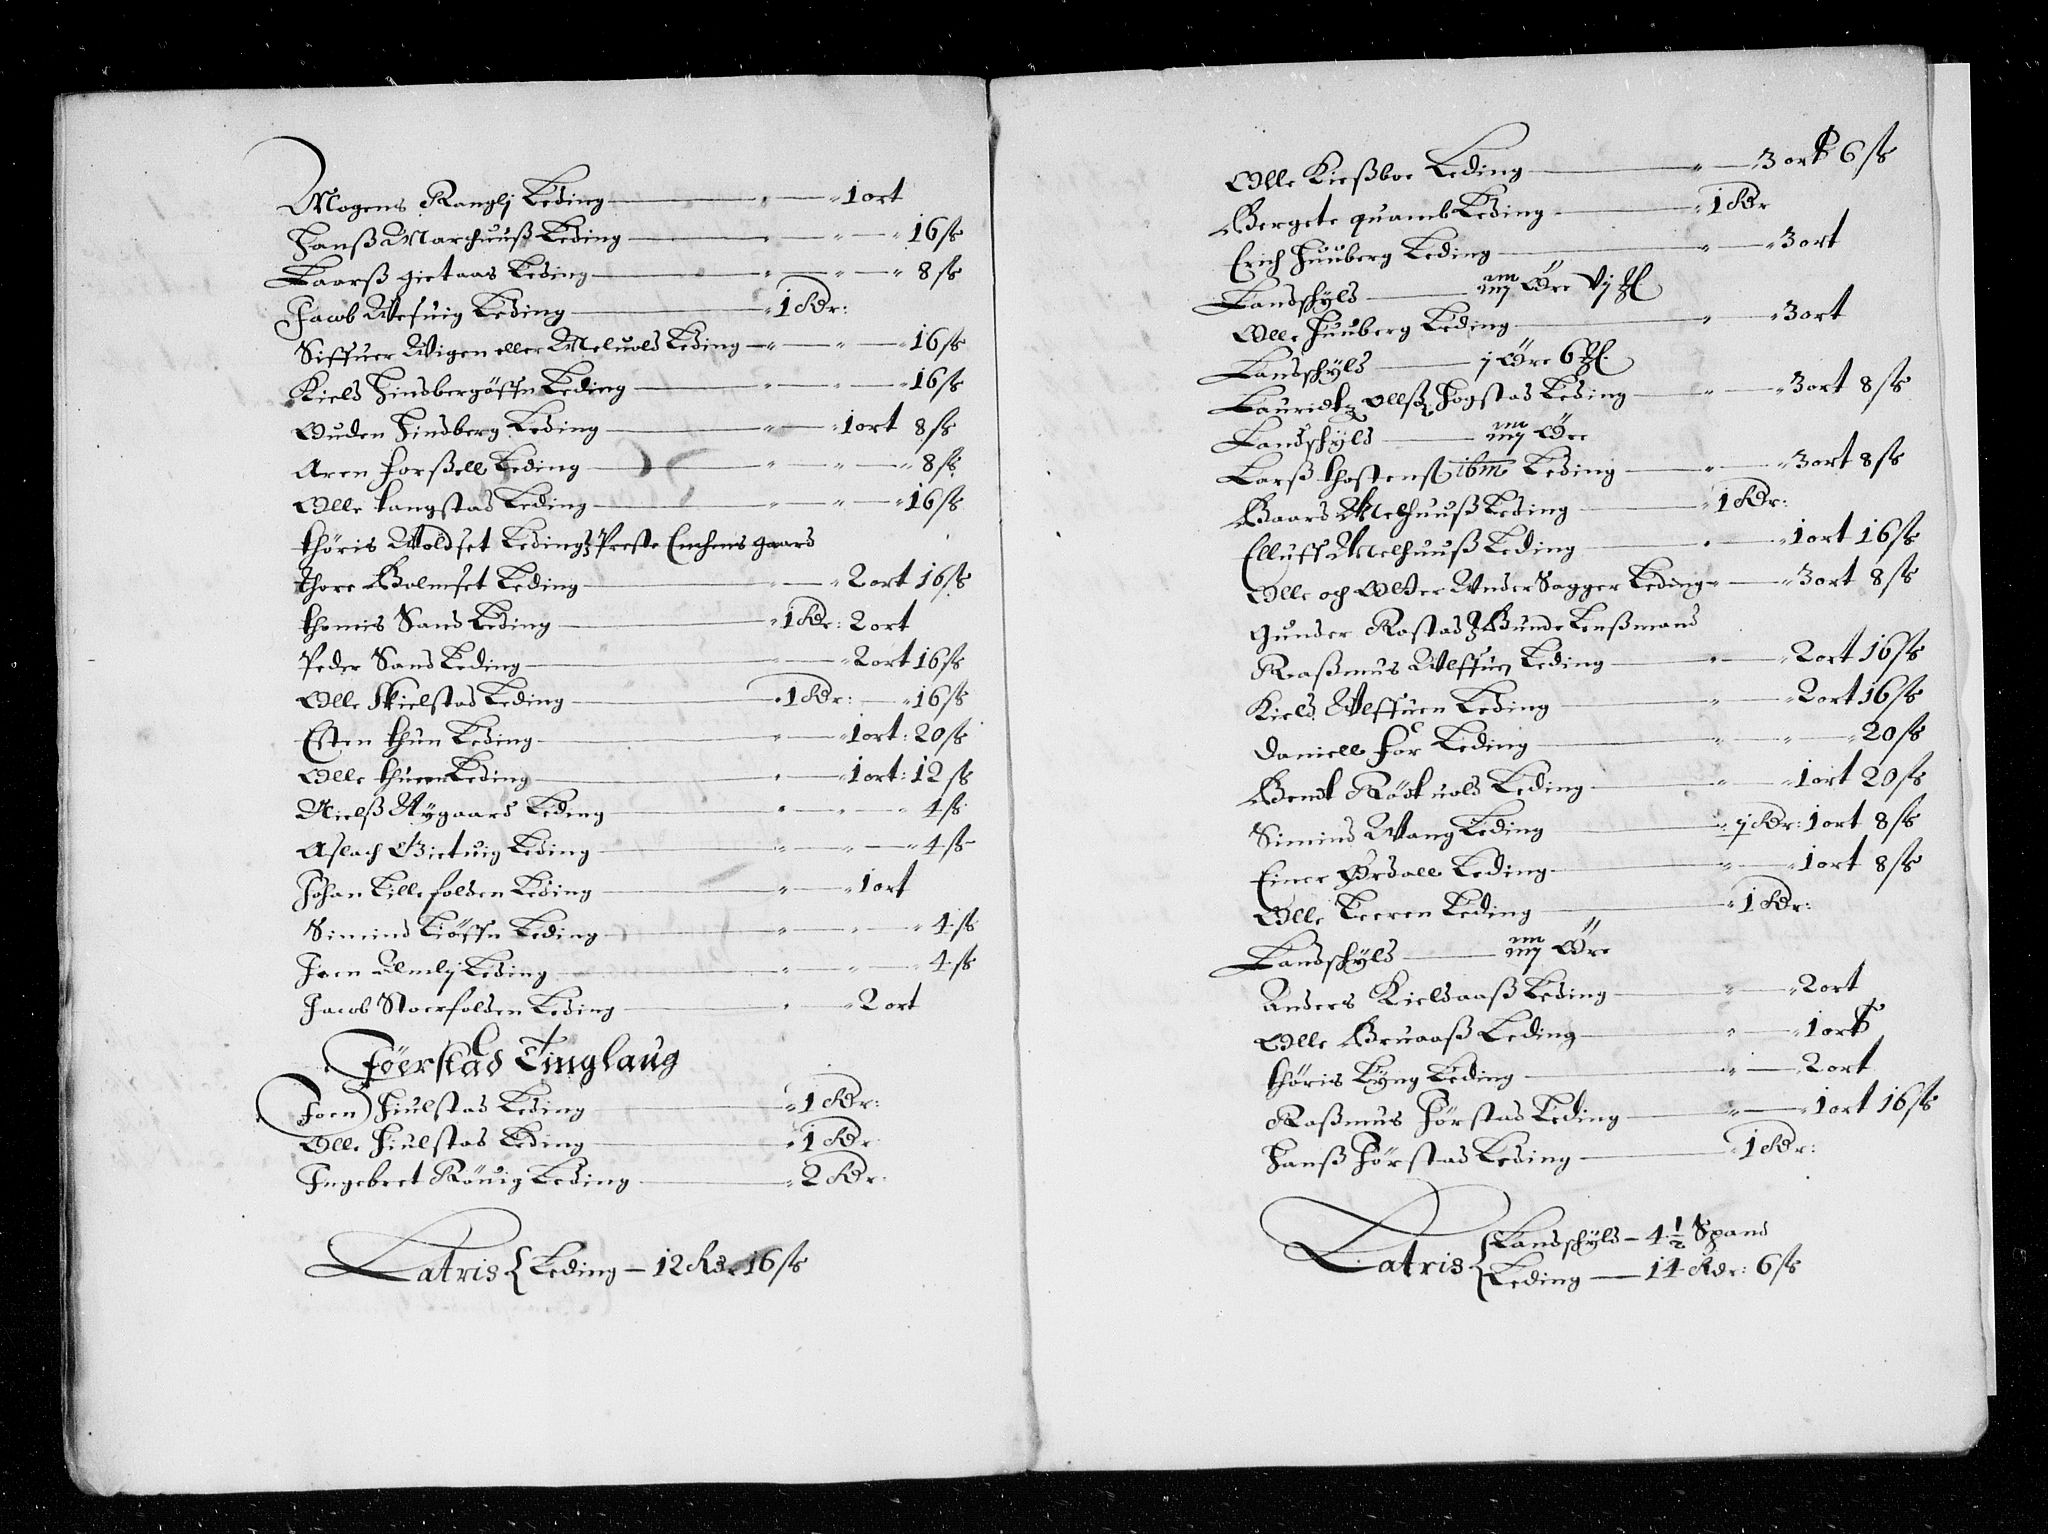 Mogens Ranglj Leding — 1 ort
Hanß Marchuuß Leding — 16 ſs
Laarß gietaas Leding — 8 ſs
Jacob Vefuig Leding — 1 Rdr:
Siffuer Vigen eller Meluold Leding — 16 ſs
Kield Hindbergöffn Leding — 16 ſs
Ouden Hindberg Leding — 1 ort 8 ſs
Aren forßell Leding — 8 ſs
Olle tangstad Leding — 16 ſs
thöris Voldset Leding Preste Enchens gaard
thore Bolmset Leding — 2 ort 16 ſs
thomis Sand Leding — 1 Rdr: 2 ort
Peder Sand Leding — 2 ort 16 ſs
Olle Skielstad Leding — 1 Rdr: 16 ſs
Esten thun Leding — 1 ort: 20 ſs
Olle thuen Leding — 1 ort: 12 ſs
Nielß Nygaard Leding — 4 ſs
Aslach Gietuig Leding — 4 ſs
Johan Lille folden Leding — 1 ort
Simind Liöffn Leding — 4 ſs
Joen Almlj Leding — 4 ſs
Jacob Stoerfolden Leding — 2 ort
Föerstad Tinglaug
Joen Hiulstad Leding — 1 Rdr:
Olle Hiulstad Leding — 1 Rdr
Ingebret Röuig Leding — 2 Rdr:
Latris { Leding — 12 Rdr 16 ſs
Olle Kießboe Leding — 3 ort 6 ſs
Bergete quamb Leding — 1 Rdr
Erich Huuberg Leding — 3 ort
Landschyld — Öre vj
Olle Huuberg Leding — 3 ort
Landschyld — j Öre 6
Lauridtz Ollß Hogstad Leding — 3 ort 8 ſs
Landschyld — Öre
Larß thostenß ibm Leding — 3 ort 8 ſs
Baard Melhuuß Leding — 1 Rdr:
Elluff Melhuuß Leding — 1 ort 16 ſs
Olle och Older Under Sagger Leding — 3 ort 8 ſs
Gunder Rostad Bunde Lenßmand
Raßmus Ulffuen Leding — 2 ort 16 ſs
Kield Ulffuen Leding — 2 ort 16 ſs
Daniell for Leding — 20 ſs
Bendt Röduold Leding — 1 ort 20 ſs
Simind Vang Leding — j Rdr: 1 ort 8 ſs
Einer Ørdall Leding — 1 ort 8 ſs
Olle Leeren Leding — 1 Rdr:
Landschyld — Öre
Anders Kieldaaß Leding — 2 ort
Olle Bruaaß Leding — 1 ort
thöris Lyng Leding — 2 ort
Raßmus Hörstad Leding — 1 ort 16 ſs
Hanß Hörstad Leding — 1 Rdr:
Latris { Landschyld — 4 1/2 Spand
Leding — 14 Rdr: 6 ſs